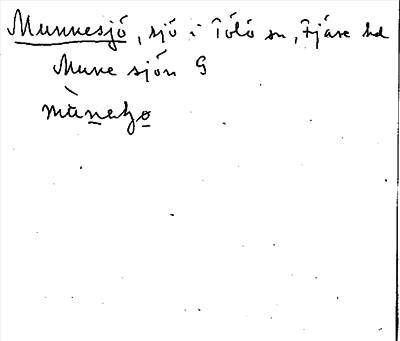 Munnesjö, sjö i Tölö sn, Fjäre hd
Mune sjön G
mùneho